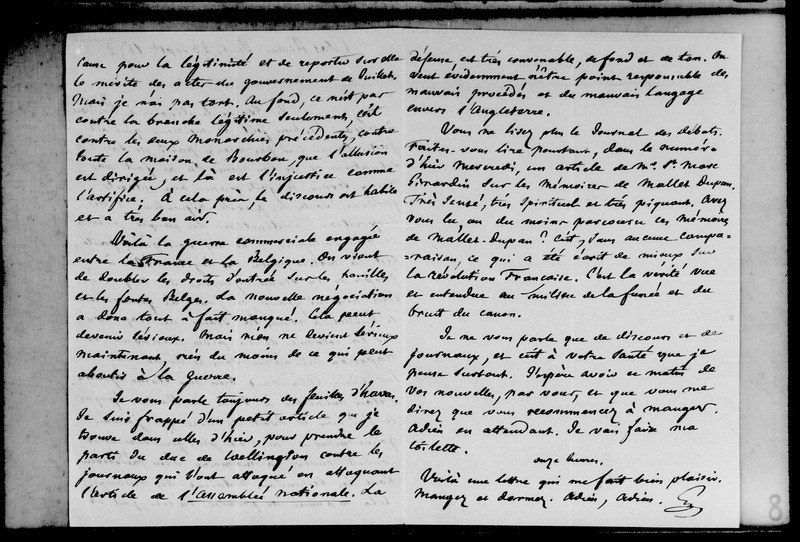 cause pour la légitimité et de reporter sur elle
le mérite des actes du gouvernement de Juillet.
Mais je n'ai pas tort. Au fond, ce n'est pas
contre la branche légitime seulement, c'est
contre les deux Monarchies précédentes, contre
toute la maison de Bourbon, que l'allusion
est dirigée, et là est l'injustice comme
l'artifice. À cela près, le discours est habile
et a très bon air.
Voilà la guerre commerciale engagée
entre la France et la Belgique. On vient
de doubler les droits d'entrée sur les houilles
et les fontes Belges. La nouvelle négociation
a donc tout à fait manqué. Cela peut
devenir sérieux. Mais rien ne devient sérieux
maintenant, rien du moins de ce qui peut
aboutir à la guerre.
Je vous parle toujours des feuilles d'havas.
Je suis frappé d'un petit article que je
trouve dans celles d'hier, pour prendre le
parti du duc de Wellington contre les
journaux qui l'ont attaqué en attaquant
l'article de l'Assemblée nationale. La
défense est très convenable, de fond et de ton. On
veut évidemment n'être point responsable des
mauvais procédés et du mauvais langage
envers l'Angleterre.
Vous ne lisez plus le Journal des débats.
Faites-vous lire pourtant, dans le numéro
d'hier Mercredi, un article de Mr. St. Marc
Girardin sur les Mémoires de Mallet Dupan.
Très sensé, très spirituel et très piquant. Avez
vous lu, ou du moins parcouru ces Mémoires
de Mallet-Dupan ? C'est, sans aucune compa-
=raison, ce qui a été écrit de mieux sur
la révolution Française. C'est la vérité vue
et entendue au milieu de la fumée et du
bruit du canon.
Je ne vous parle que de discours et de
journaux, et c'est à votre santé que je
pense surtout. J'espère avoir ce matin de
vos nouvelles, par vous, et que vous me
direz que vous recommencez à manger.
Adieu en attendant. Je vais faire ma
toilette.
onze heures.
Voilà une lettre qui me fait bien plaisir.
Mangez et dormez. Adieu, Adieu. G
8